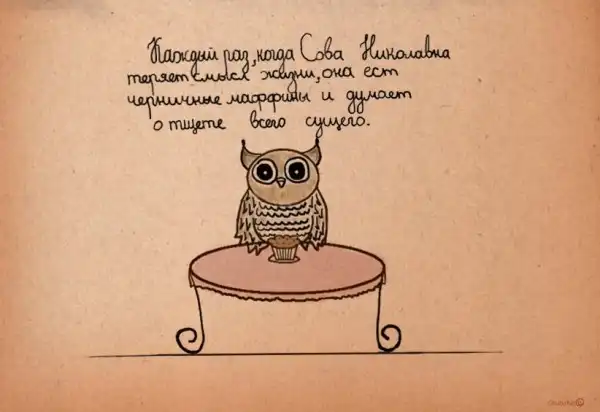 Каждый раз, когда Сова Николавна
теряет смысл жизни, она ест
черничные маффины и думает
о тщете всего сущего.